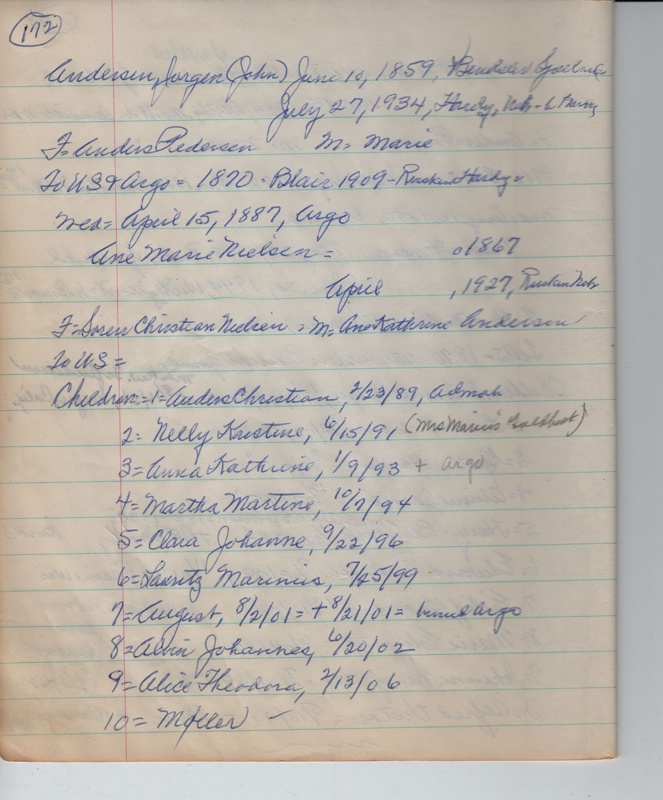 172
Andersen, Jorgen (John) June 10, 1859,
July 27, 1934, Hardy, Neb -
F = Anders Pedersen M = Marie
To US + Argo = 1870 - Blair 1909 - Ruskin Hardy =
Wed = April 15, 1887, Argo
Ane Marie Nielsen = 1867
April , 1927, Ruskin Neb
F = Soren Christian Nielsen = M = Ane Kathrine Andersen
To US =
Children = 1 = Anders Christian, 2/23/89,
2 = Nelly Kristine, 6/15/91, (Mrs Marius
3 = Anna Kathrine, 1/9/93 + Argo
4 = Martha Martine, 10/7/94
5 = Clara Johanne, 9/22/96
6 = Lauritz Marinus, 7/25/99
7 = August, 8/2/01 = + 8/21/01 = buried Argo
8 = Alvin Johannes, 6/20/02
9 = Alice Theodora, 2/13/06
10 = Møller -